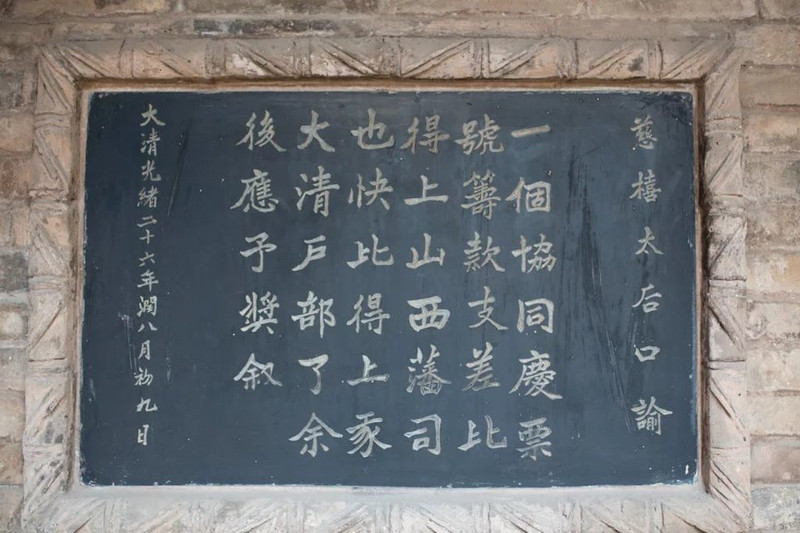 慈禧太后口諭
一個協同慶票
號籌款支差比
得上山西藩司
也快比得上我
大清戶部了余
後應予獎叙
大清光緒二十六年潤八月初九日